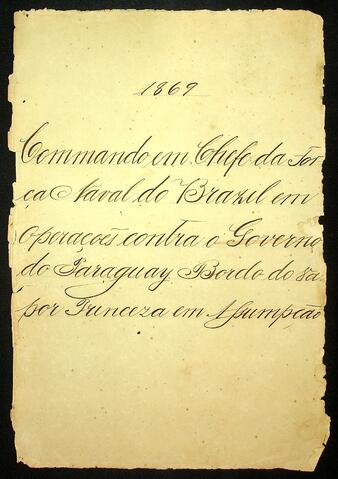 1869
Commando em Chefe da For
ça Naval do Brazil em
operacoës contra o Governo
do Paraguay Bordo do Va
por Princeza em Assumpção